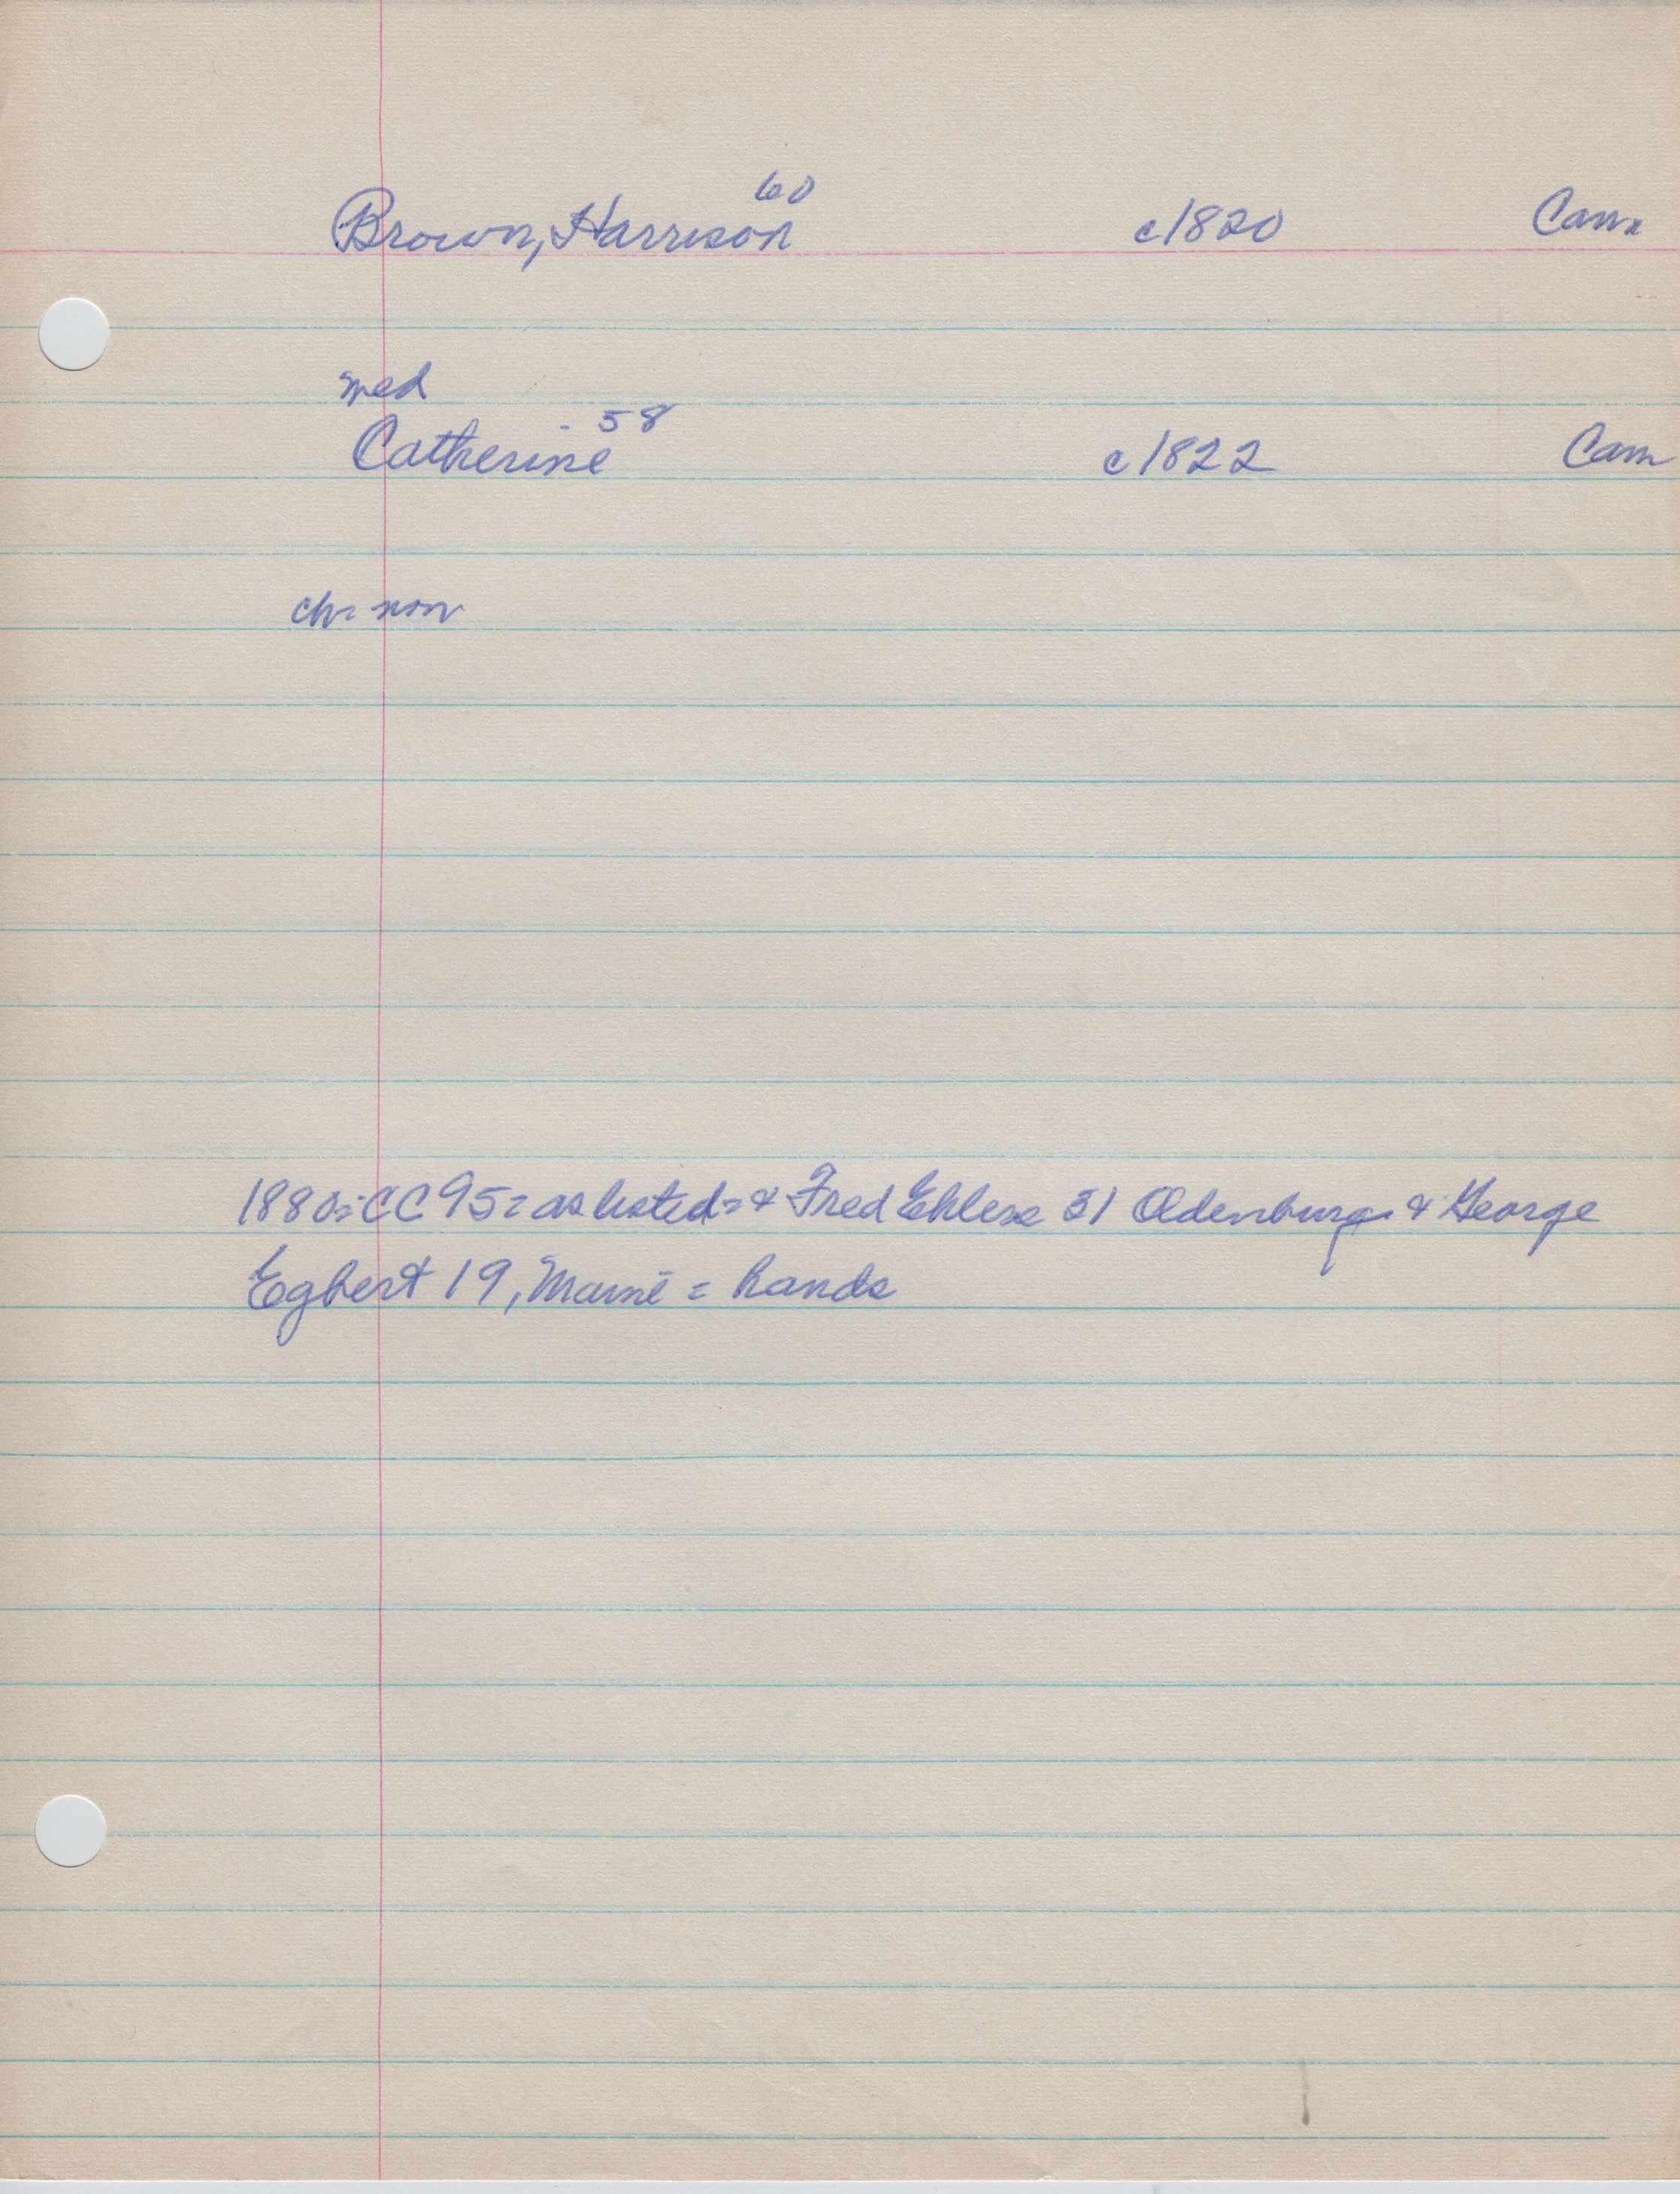 60
Brown, Harrison c1820 Can
med
58
Catherine c1822 Can
ch: non
1880: CC95 = as listed = & Fred Ehlers 31 Oldenburg & George
Egbert 19, Maine = hands